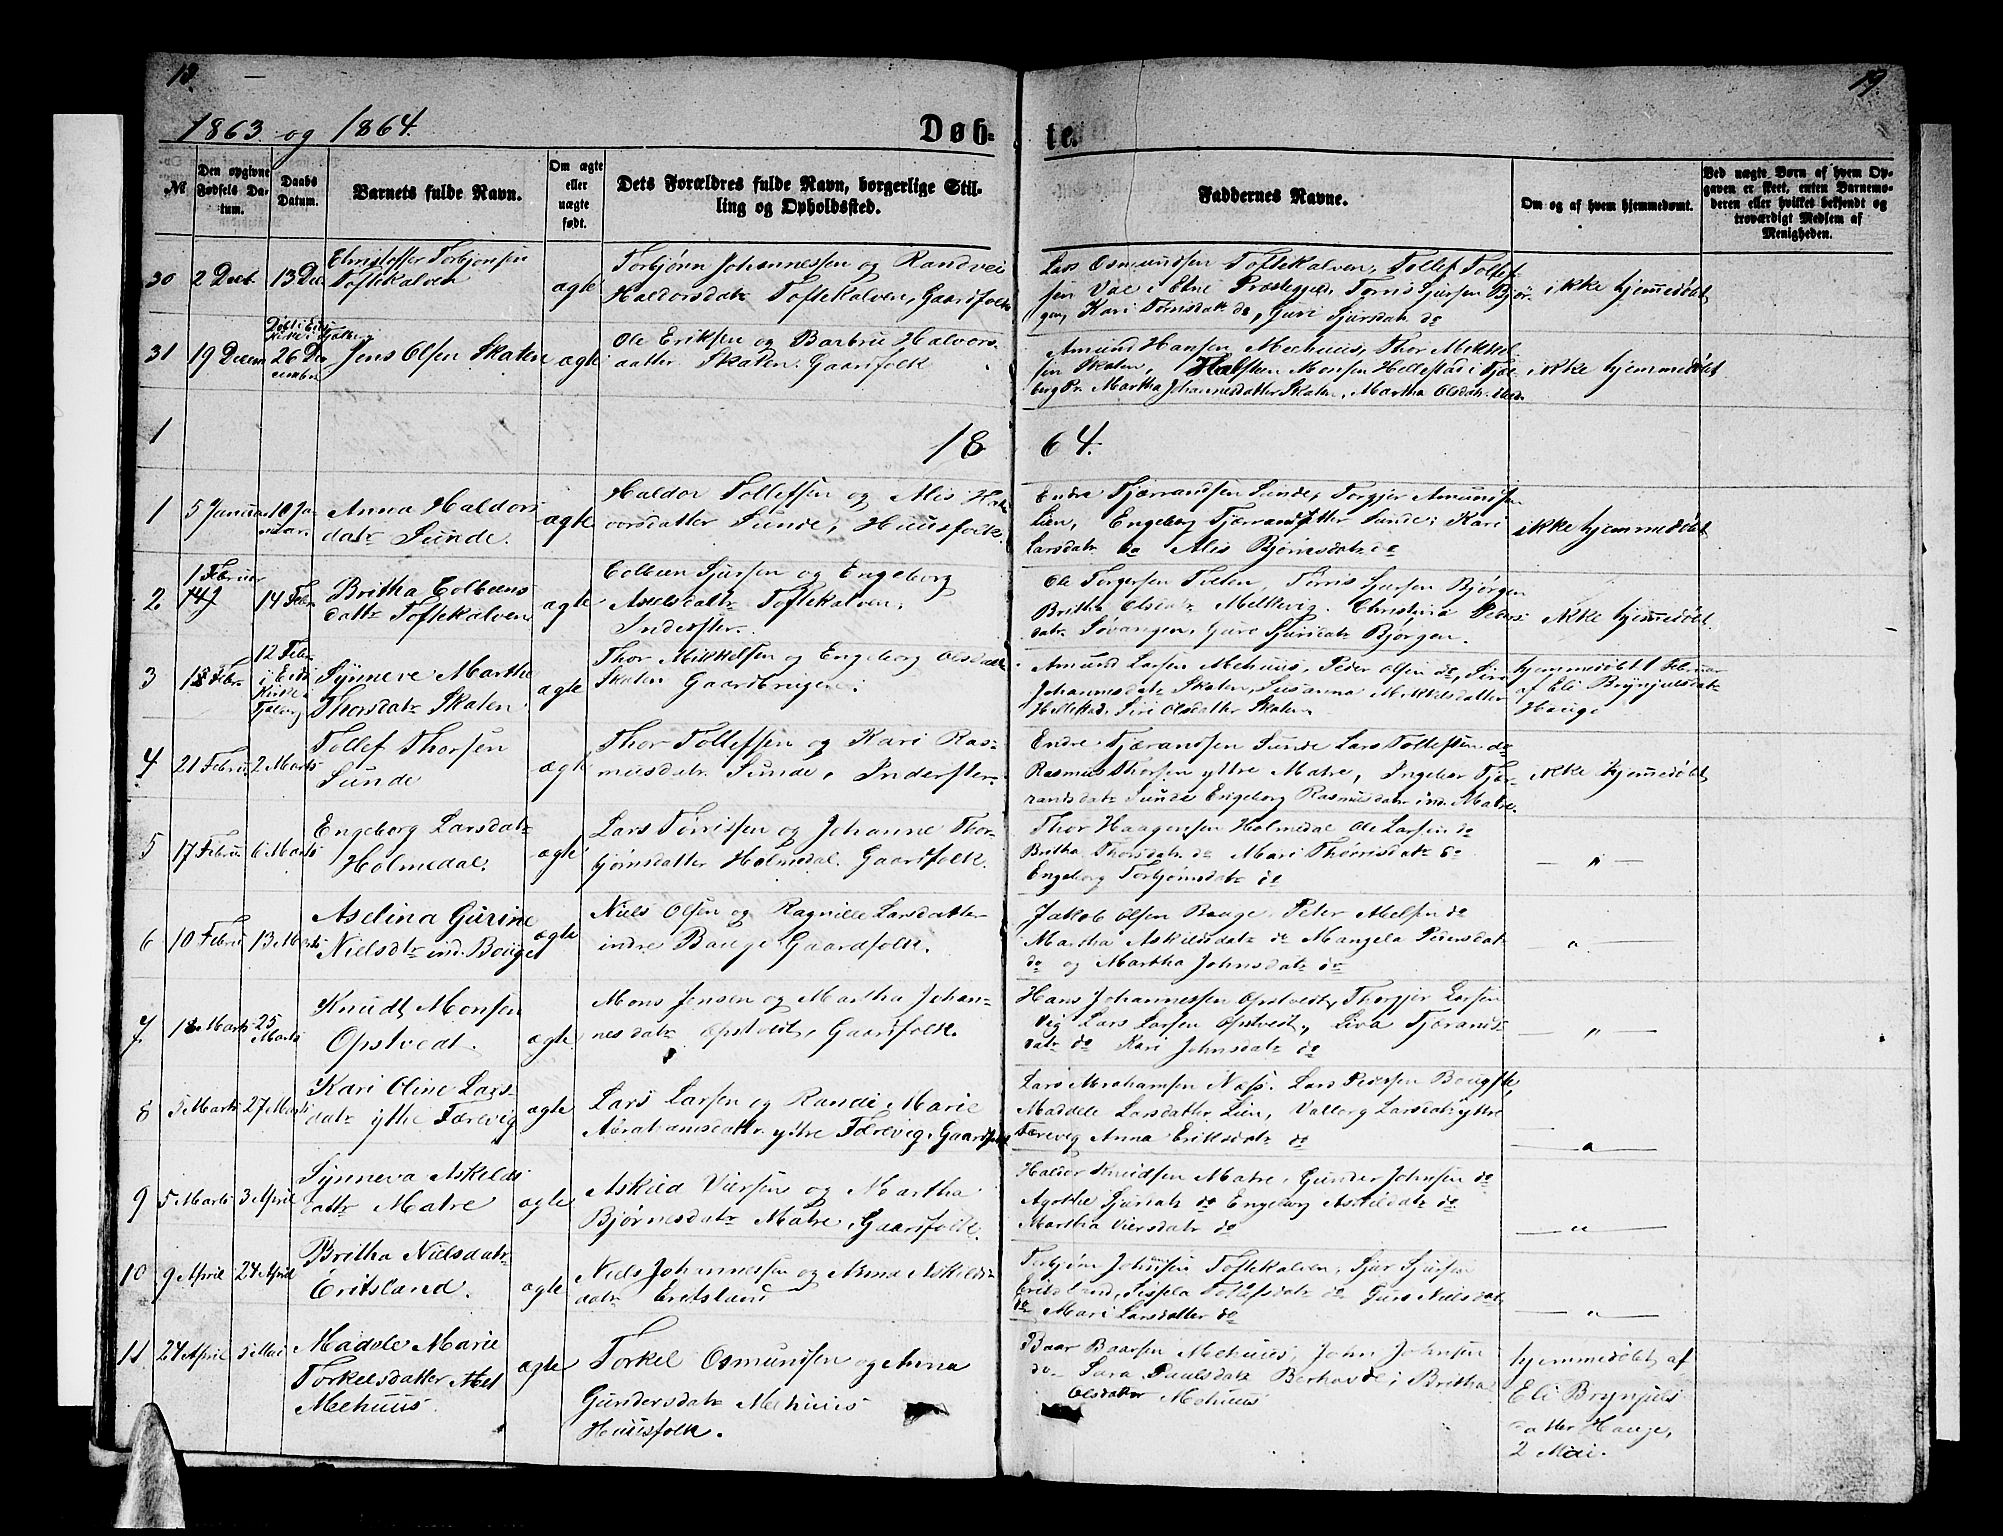 19
1863 og 1864.
Døb-
te.
№
Den opgivne Fødsels Da-tum.
Daabs Datum.
Barnets fulde Navn.
Om ægte eller uægte født.
Dets Forældres fulde Navn, borgerlige Stil-
ling og Opholdssted.
Faddernes Navne.
Om og af hvem hjemmedøbt.
Ved uægte Børn af hvem Op-
gaven er skeet, enten Barnemo-
deren eller hvilket bekjendt og
troværdigt Medlem af
Menigheden.
30
2 Decb
13 Dec
Christoffer Torbjønsen
Toftekalven
ægte
Torbjørn Johannessen og Randvei
Haldorsdatr Toftekalven, Gaardfolk
Lars Osmundsen Toftekalven, Tollef Tollef-
sen Vae i Etne Præstegjeld, Tørris Sjursen Bjør-
gen, Kari Tørrisdatr do, Guri Sjursdatr do
ikke hjemmedøbt
31
19 Decem
26 De
cember
Jens Olsen Skaten
ægte
Ole Eriksen og Barbru Halvors-
datter Skaten. Gaardfolk
Amund Hansen Mehuus, Thor Mikkel-
sen Skaten, Halsteen Monsen Hellestad i Fjel-
berg Pr. Martha Johannesdatter Skaten, Martha Olsdatr
ikke hjemmedøbt
1
18
64.
1
5 Januar
10 Ja
nuar.
Anna Haldors
datr Sunde.
ægte
Haldor Tollefsen og Alis Hal-
vorsdatter Sunde, Huusfolk.
Endre Tjærandsen Sunde, Torgjer Amundsen
Lien, Engeborg Tjærandsdtter Sunde, Kari
Larsdatr do Alis Bjørnsdatr do
ikke hjemmedøbt
2
1 Februar
14 Febr
Britha Colbeens
datr Toftekalven
ægte
Colbeen Sjursen og Engeborg
Axelsdatr Toftekalven.
Inderster.
Ole Torgersen Tveten, Tørris Sjursen Bjørgen
Britha Olsdatr Melkevig. Christina Peders-
datr Søvangen, Guri Sjursdatr Bjørgen.
ikke hjemmedøbt.
3
Febr
12 Feb
Synneve Martha
Thorsdatr Skaten.
ægte
Thor Mikkelsen og Engeborg Olsdatr
Skaten Gaardbruger.
Amund Larsen Mehuus, Peder Olsen do, Siri
Johannesdatr Skaten, Susanna Mikkelsdatter
Hellestad, Siri Olsdatter Skaten
hjemmedøbt 1 Februar
af Eli Brynjulsdatr
Hauge
4
21 Febru
2 Marts
Tollef Thorsen
Sunde
ægte
Thor Tollefsen og Kari Ras-
musdatr Sunde, Inderster.
Endre Tjærandsen Sunde Lars Tollefsen do
Rasmus Thorsen yttre Matre, Ingebor Tjæ-
randsdatr Sunde Engeborg Rasmusdatr ind. Matre.
ikke hjemmedøbt
5
17 Febru
6 Marts
Engeborg Larsdatr
Holmedal.
ægte
Lars Tørrissen og Johanne Thor-
bjørnsdatter Holmedal. Gaardfolk.
Thor Haagensen Holmedal Ole Larsen do
Britha Thorsdatr do Mari Thørrisdatr do
Engeborg Torbjørnsdatr do
— " —
6
10 Febru
13 Marts
Aselina Gurine
Nielsdtr ind. Bouge
ægte
Niels Olsen og Ragnille Larsdatter
indre Bauge Gaardfolk.
Jakob Olsen Bauge, Peter Melsen do
Martha Askildsdatr do Mangela Pedersdatr
do og Martha Johnsdatr do
— " —
7
Marts
25
Marts
Knudt Monsen
Opstvedt.
ægte
Mons Jensen og Martha Johan-
nesdatr Opstvedt, Gaardfolk.
Hans Johannessen Opstvedt, Thorgjer Larsen
Vig Lars Larsen Opstvedt, Liva Tjærands-
datr do Kari Johnsdatr do
— " —
8
5 Marts
27 Marts
Kari Oline Lars-
datr yttre Færevig
ægte
Lars Larsen og Randi Marie
Abrahamsdattr yttre Færevig, Gaardfolk
Lars Abrahamsen Næss. Lars Pedersen
Maddele Larsdatter Lien, Valborg Larsdatr yttre
Færevig Anna Eriksdatr do
— " —
9
5 Marts
3 April
Synneva Askilds
datr Matre
ægte
Askild Viersen og Martha
Bjørnesdatr Matre, Gaardfolk.
Haldor Knudsen Matre, Gunder Johnsen do
Agathe Sjursdatr do Engeborg Askildsdatr do
Martha Viersdatr do
— " —
10
9 April
24 April
Britha Nielsdatr
Eritsland.
ægte
Niels Johannessen og Anna Askilds-
datr Eritsland
Torbjørn Johnsen Toftekalven, Sjur Sjursen
Eritsland, Sissela Tollefsdatr do Guro Nielsdatr
do Mari Larsdatter do
— " —
11
24 April
5 Mai
Madele Marie
Torkelsdatter
Mehuus.
ægte
Torkel Osmundsen og Anna
Gundersdatr Mehuus
Huusfolk.
Baar Baarsen Mehuus, John Johnsen
do Sara Paulsdatr Berhovde, Britha
Olsdatter Mehuus
hjemmedøbt af
Eli Brynjuls
datter Hauge,
2 Mai.